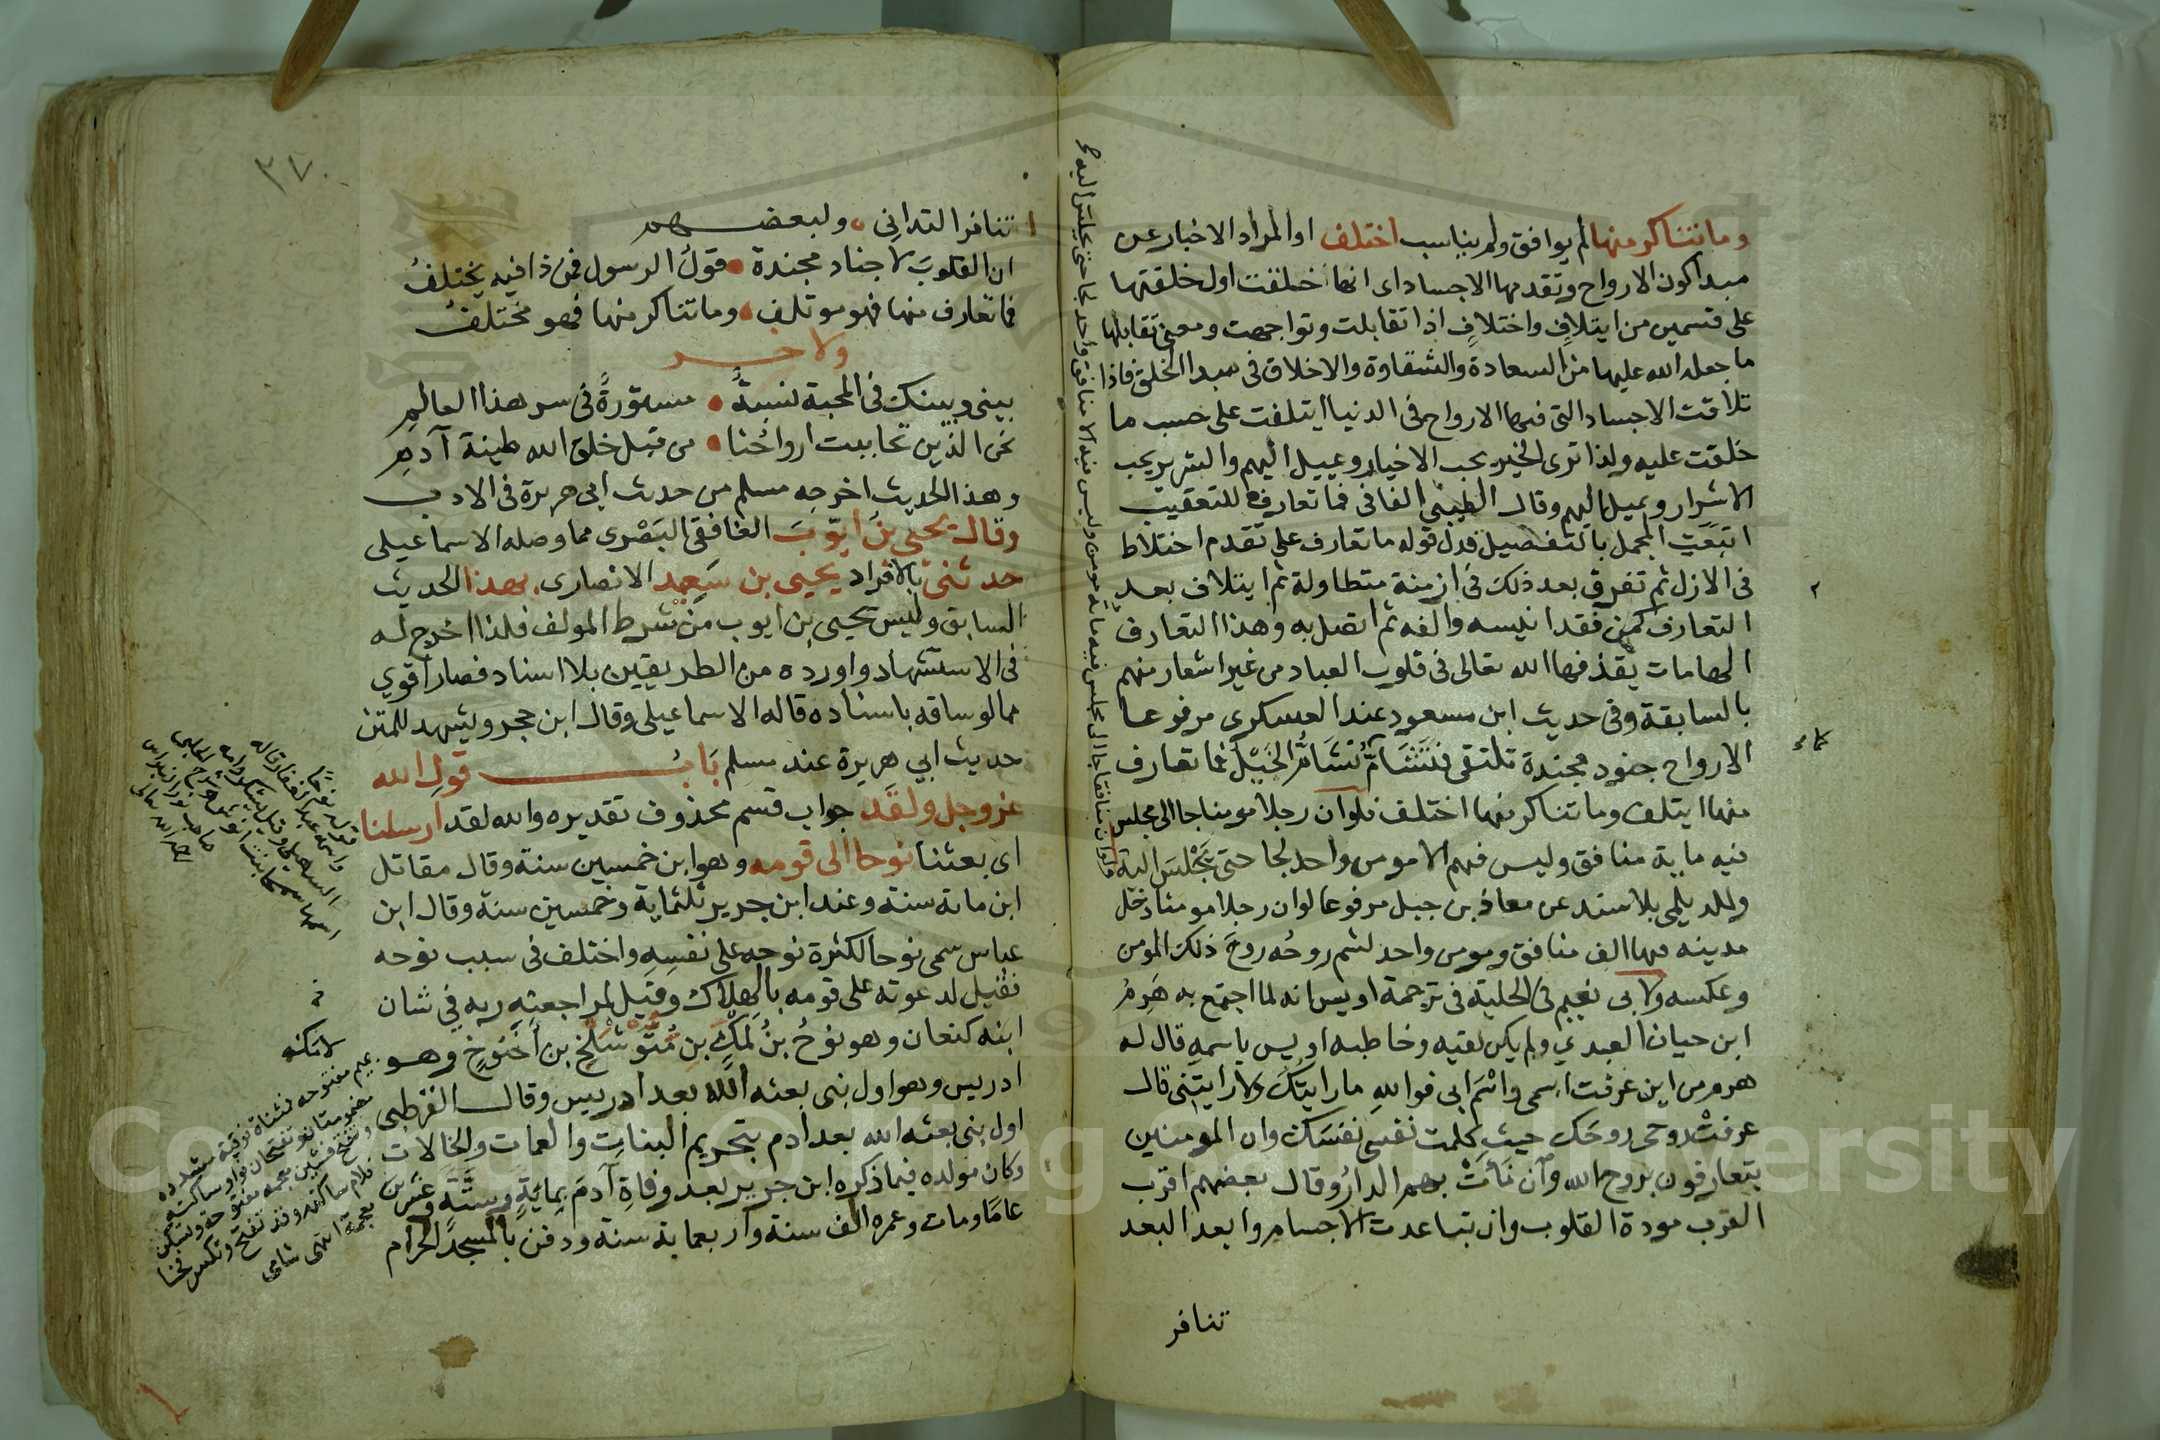 وما تناكر منها لم يوافق ولم يناسب اختلف او المراد الاخبار عن
مبدا كون الارواح وتقدمها الاجساد اى انها خلقت اول خلقتها
على قسمين من ايتلاف واختلاف اذا تقابلت وتواجهت ومعنى تقابلها
ما جعله الله عليها من السعادة والشقاوة والاخلاق فى مبدا الخلق فاذا
تلاقت الاجساد التى فيها الارواح فى الدنيا ايتلفت على حسب ما
خلقت عليه ولذا ترى الخير يحب الاخيار ويميل اليهم والشرير يحب
الاشرار ويميل اليهم وقال الطيبى الفا فى فما تعارف للتعقيب
اتبعت المجمل بالتفصيل فدل قوله ما تعارف على تقدم اختلاط
فى الازل ثم تفرق بعد ذلك فى ازمنة متطاولة ثم ايتلاف بعد
التعارف كمن فقد انيسه والفه ثم اتصل به وهذا التعارف
الهامات يقذفها الله تعالى فى قلوب العباد من غير اشعار منهم
بالسابقة وفى حديث ابن مسعود عند العسكرى مرفوعا
الارواح جنود مجندة تلتقى فتشام كما تشام الخيل فما تعارف
منها ايتلف وما تناكر منها اختلف فلو ان رجلا مومنا جا الى مجلس
فيه ماية منافق وليس فيهم الا مومن واحد لجا حتى يجلس اليه
ولو ان منافقا جا الى مجلس فيه ماية مومن وليس فيه الا منافق واحد لجا حتى يجلس اليه
وللديلمى بلا سند عن معاذ بن جبل مرفوعا لو ان رجلا مومنا دخل
مدينه فيها الف منافق ومومن واحد لشم روحه روح ذلك المومن
وعكسه ولابى نعيم فى الحلية فى ترجمة اويس انه لما اجتمع به هرم
ابن حيان العبدي ولم يكن لقيه وخاطبه اويس باسمه قال له
هرم من اين عرفت اسمى واسم ابى فوالله ما رايتك ولا رايتنى قال
عرفت روحى روحك حيث كلمت نفسى نفسك وان المومنين
يتعارفون بروح الله وان نات بهم الدار وقال بعضهم اقرب
القرب مودة القلوب وان تباعدت الاجسام وابعد البعد
تنافر
٣٧٠
تنافر التدانى ولبعضهم
ان القلوب لاجناد مجندة قول الرسول فمن ذا فيه يختلف
فما تعارف منها فهو موتلف وما تناكر منها فهو مختلف
ولاخر
بينى وبينك فى المحبة نسبة مستورة فى سر هذا العالم
نحن الذين تحاببت ارواحنا من قبل خلق الله طينة آدم
وهذا الحديث اخرجه مسلم من حديث ابى هريرة فى الادب
وقال يحيى بن ايوب الغافقى البصرى مما وصله الاسماعيلى
حدثنى بالافراد يحيى بن سعيد الانصارى بهذا الحديث
السابق وليس يحيى بن ايوب من شرط المولف فلذا اخرج له
فى الاستشهاد واورده من الطريقين بلا اسناد فصار أقوي
مما لو ساقه باسناده قاله الاسماعيلى وقال ابن حجر ويشهد للمتن
حديث ابي هريرة عند مسلم باب قول الله
عز وجل ولقد جواب قسم محذوف تقديره والله لقد أرسلنا
اى بعثنا نوحا الى قومه وهو ابن خمسين سنة وقال مقاتل
ابن ماىة سنة وعند ابن جرير ثلثماية وخمسين سنة وقال ابن
عباس سمى نوحا لكثرة نوحه على نفسه واختلف فى سبب نوحه
فقيل لدعوته على قومه بالهلاك وقيل لمراجعته ربه في شان
ابنه كنعان وهو نوح بن لمك بن متوشلخ بن أخنوخ وهو
ادريس وهو اول نبى بعثه الله بعد ادريس وقال القرطبى
اول نبى بعثه الله بعد ادم بتحريم البنات والعمات والخالات
وكان مولده فيما ذكره ابن جرير بعد وفاة آدم بماية وستة وعشرين
عاما ومات وعمره الف سنة واربعماية سنة ودفن بالمسجد الحرام
قوله نوحا
واسمه عبد الغفار قاله